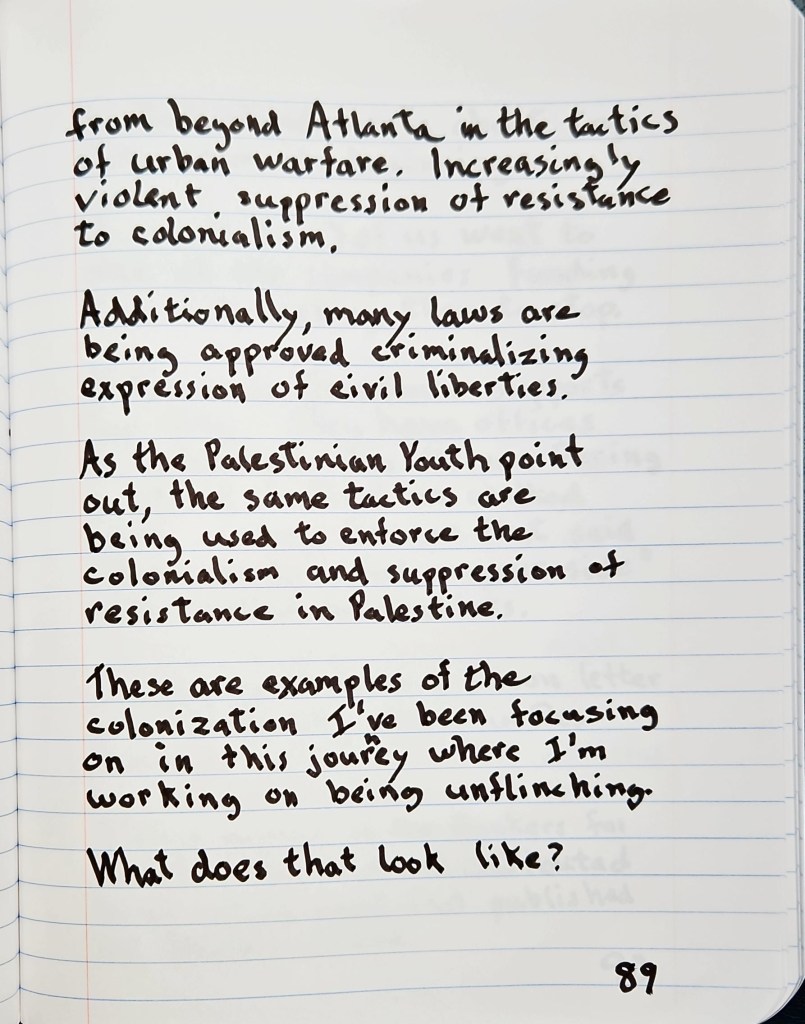 from beyond Atlanta in the tactics
of urban warfare. Increasingly
violent suppression of resistance
to colonialism.
Additionally, many laws are
being approved criminalizing
expression of civil liberties.
As the Palestinian Youth point
out, the same tactics are
being used to enforce the
colonialism and suppression of
resistance in Palestine.
These are examples of the
colonization I've been focusing
on in this journey where I'm
working on being unflinching.
What does that look like?
89